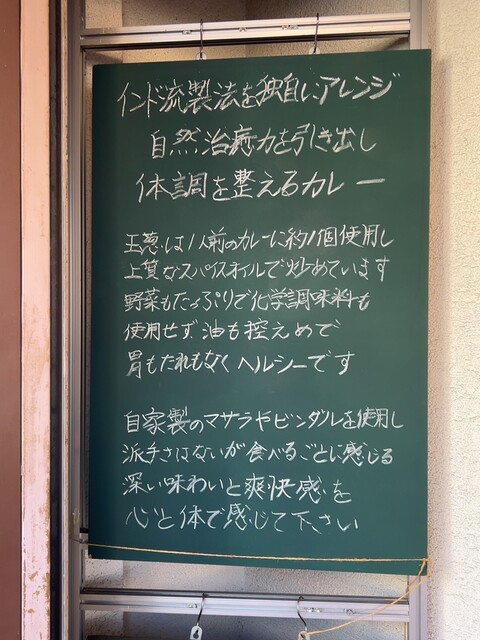 インド流製法を独自にアレンジ
自然治癒力を引き出し
体調を整えるカレー
玉葱は1人前のカレーに約1個使用し
上質なスパイスオイルで炒めています
野菜もたっぷりで化学調味料も
使用せず油も控えめで
胃もたれもなくヘルシーです
自家製のマサラやビンダルを使用し
派手さはないが食べるごとに感じる
深い味わいと爽快感を
心と体で感じて下さい